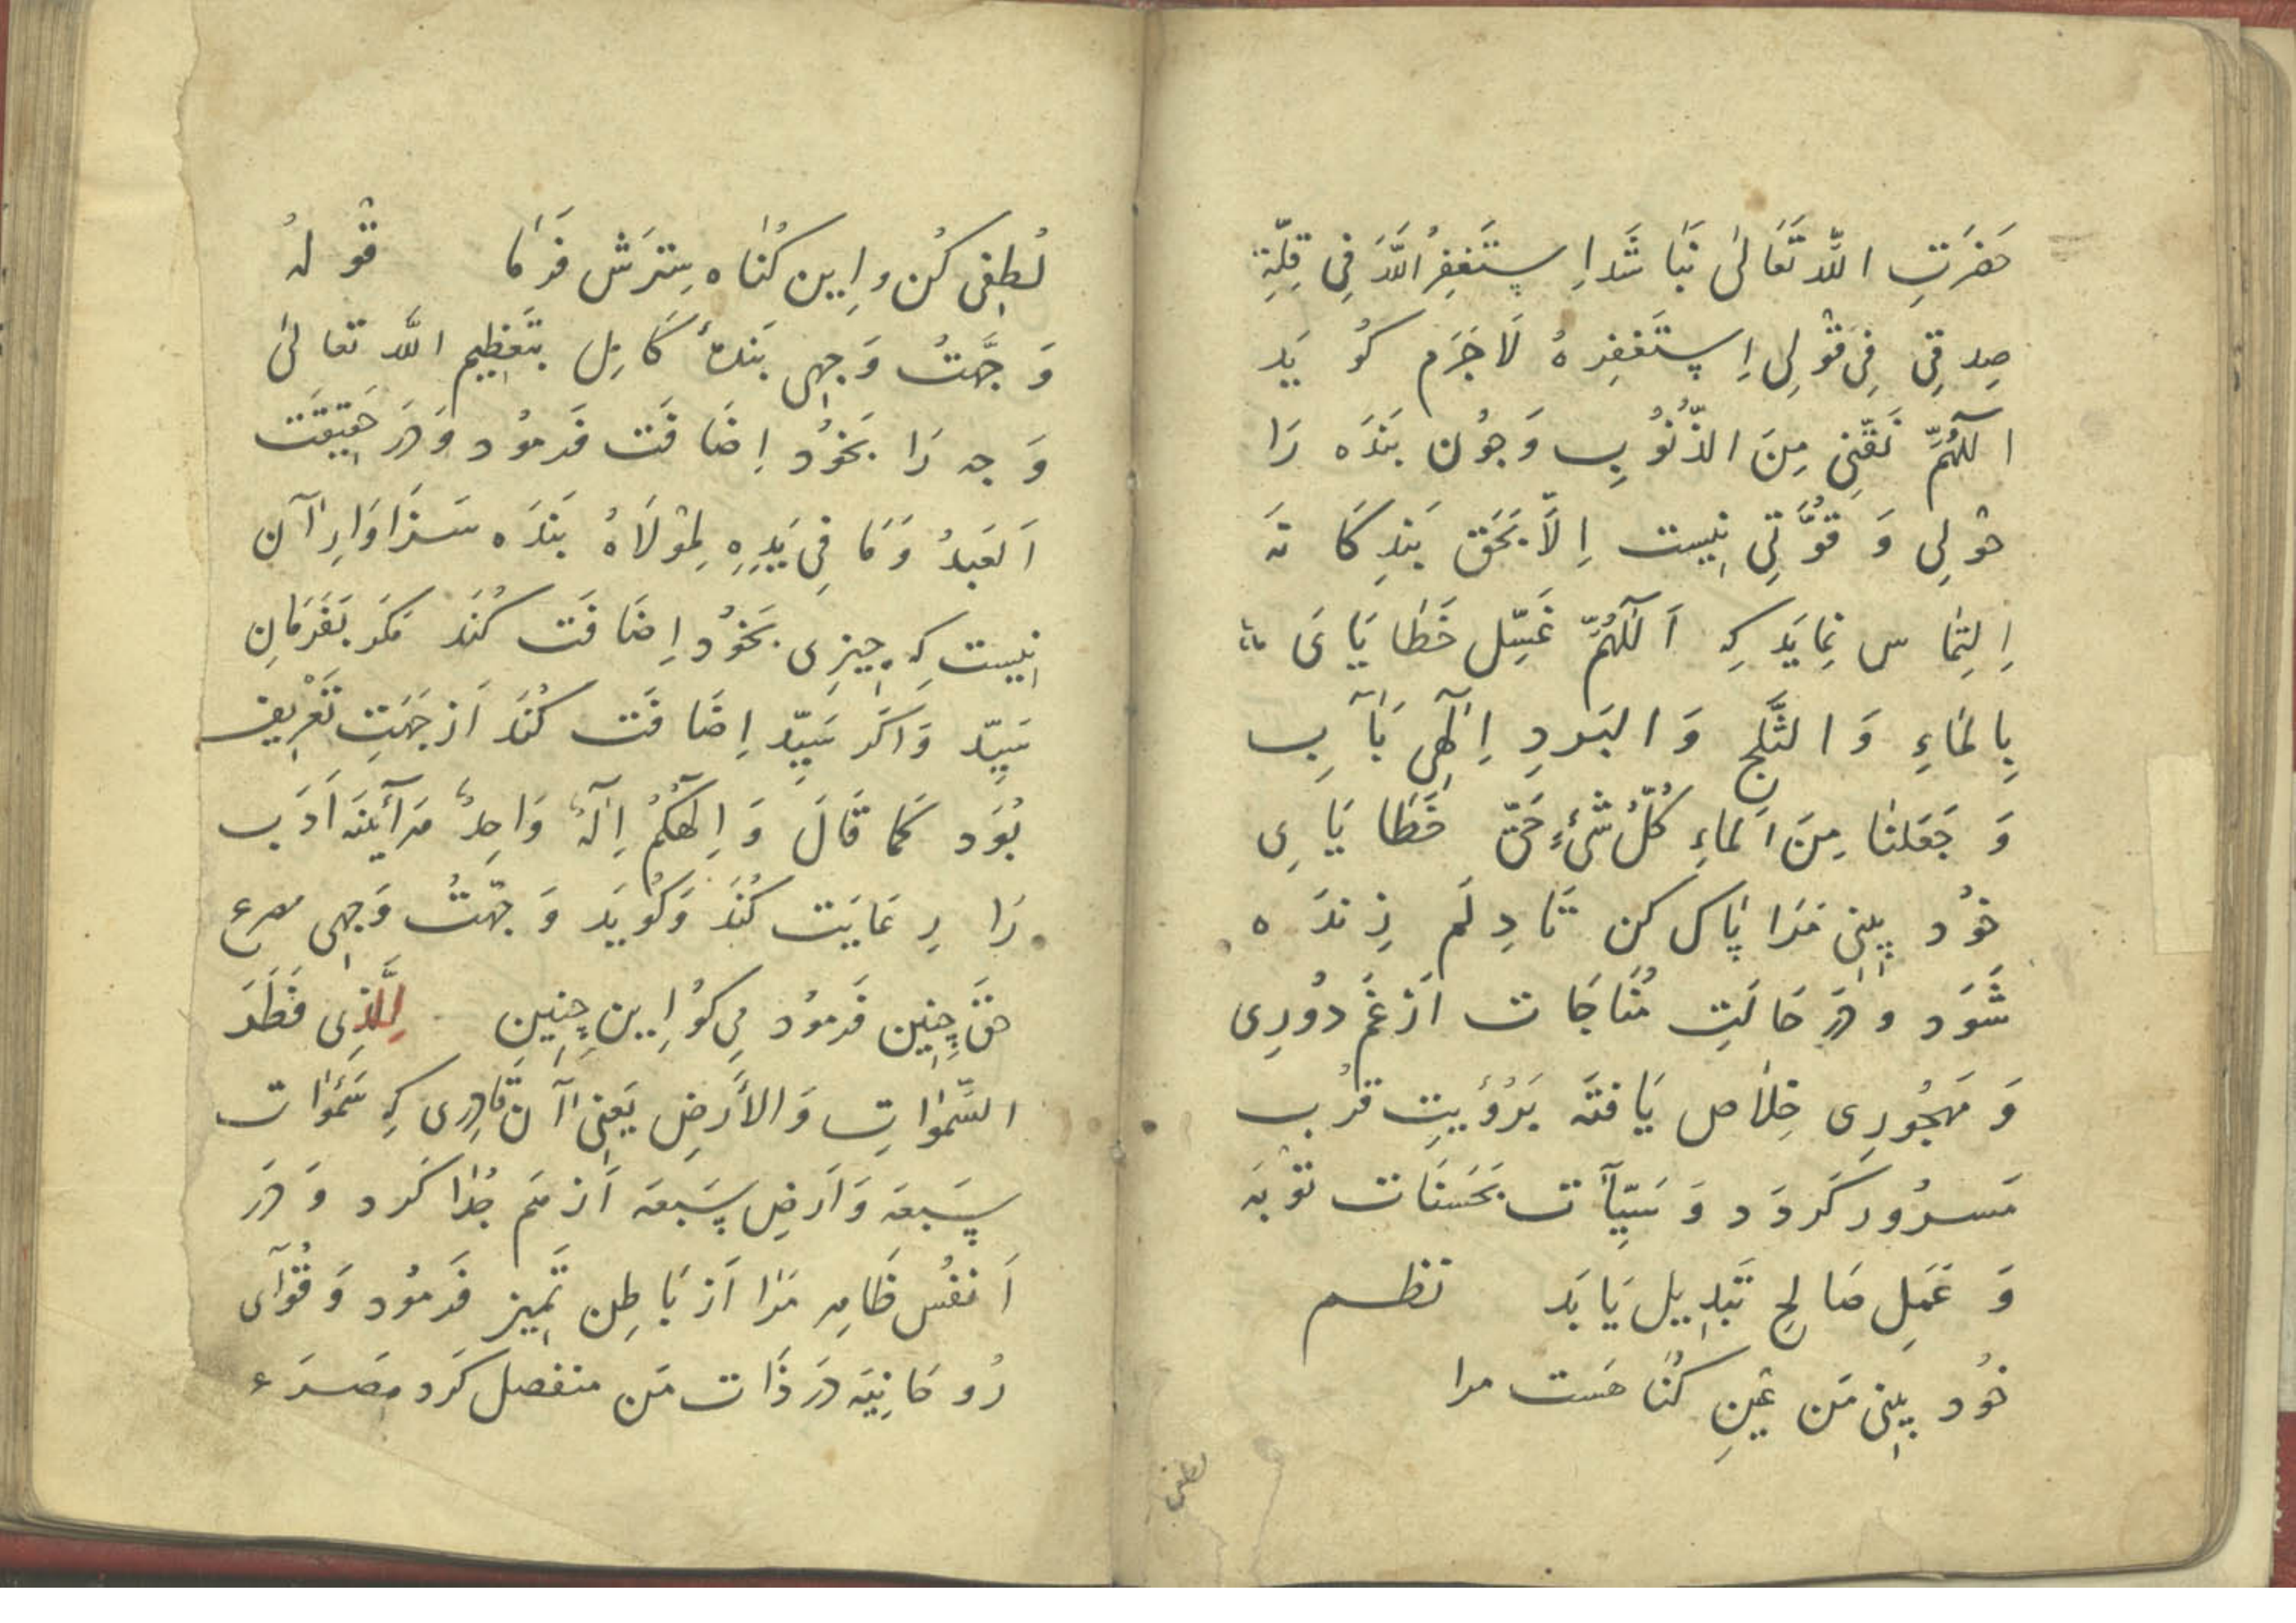 حَضرَتِ اللّه تَعَالٰی نَبَاشَد اِستَغفِرُ اللّهَ فِی قِلَّةِ
صِدقِی فِی قَوْلِی اِستَغفِرهُ لَاجَرَم کُویَد
اللّٰهُمَّ نَقِّنِی مِنَ الذُّنُوبِ وَجُون بَندَه رَا
حَوْلِی وَ قُوَّتِی نِیست اِلَّا بَحَق بَندِکَانَه
اِلتِمَاس نِمَایَد کِه اَللّٰهُمَّ غَسِّل خَطَایَایَ
بِالمَاءِ وَ الثَّلجِ وَ البَردِ اِلٰهِی بَآبِ
وَ جَعَلنَا مِنَ المَاءِ کُلَّ شَیءٍ حَیّ خَطَایَایِ
خوُد بِینِی مَرَا پَاک کن تَا دِلَم زِندَه
شَوَد و دَر حَالَتِ مُنَاجَات اَز غَم دوُرِی
وَ مَهجُورِی خِلَاص یَافتَه بَرُؤیَتِ قُرب
مَسرُور کَردَد وَ سَیِّآت بَحَسَنَات تَوْبَه
وَ عَمَلِ صَالِح تَبدِیل یَابَد نظم
خوُد بِینی مَن عَینِ کُنَاهَست مرا
لطفی
لُطفِی کُن و اِین کُنَاه سِتَرَش فَرمَا قَوْلهُ
وَجَّهتُ وَجهِی بَندهٔ کَامِل بتَعظِیم اللّه تعالٰی
وَجه رَا بَخوُد اِضَافَت فَرموُد وَدَر حَقِیقَت
اَلعَبدُ وَمَا فِی یَدِهِ لِمَوْلَاهُ بَندَه سَزَاوَارِ آن
نِیست کِه چِیزِی بَخوُد اِضَافَت کُنَد مَکَر بَفَرمَانِ
سَیِّد وَ اَکَر سَیِّد اِضَافَت کُنَد اَز جَهَتِ تَعْرِیف
بُوَد کَمَا قَالَ وَ اِلٰهُکُمْ اِلٰهٌ وَاحِدٌ هَرآیِنَه اَدَب
رَا رِعَایَت کُنَد وَ کوُیَد وَجَّهتُ وَجهِی مصرع
حَق چِنِین فَرموُد مِی کوُ اِین چِنِین لِلَّذِی فَطَرَ
السَّمٰوَاتِ وَ الاَرضِ یَعنِی آن قَادِرِی کِه سَمٰوَات
سَبعَه وَ اَرضِ سَبعَه اَز هَم جُدَا کَرد وَ دَر
اَنفُس ظَاهِر مَرَا اَز بَاطِن تَمِیز فَرمُود وَ قُوَآی
رُوحَانِیَه دَر ذَات مَن منفصل کَرد مِصرَع